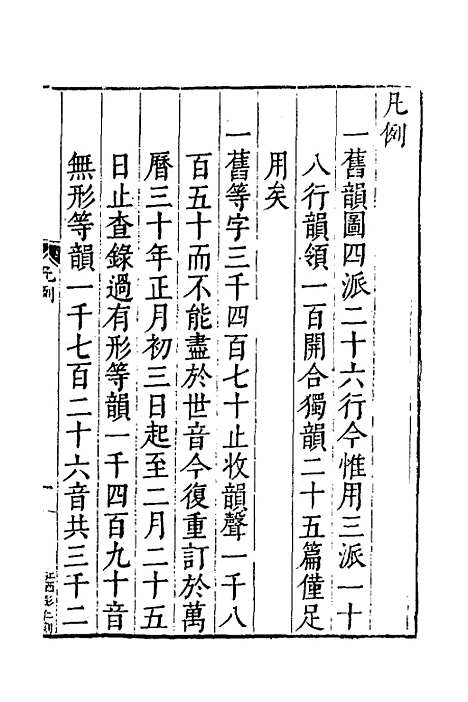 凡例
一舊韻圖四派二十六行今惟用三派一十
八行韻領一百開合獨韻二十五篇僅足
用矣
一舊等字三千四百七十止收韻聲一千八
百五十而不能盡於世音今復重訂於萬
曆三十年正月初三日起至二月二十五
日止查錄過有形等韻一千四百九十音
無形等韻一千七百二十六音共三千二
凡例
一
江西彭仁刻